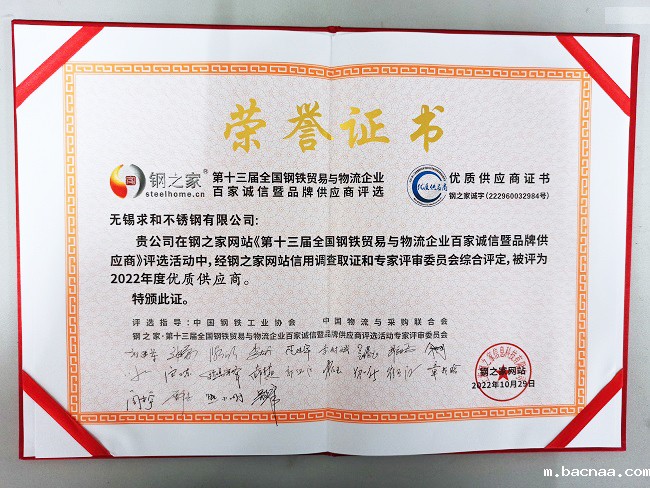 荣誉证书
钢之家®
steelhome.cn
第十三届全国钢铁贸易与物流企业
百家诚信暨品牌供应商评选
优质供应商
优质供应商证书
钢之家诚字(222960032984号)
无锡求和不锈钢有限公司:
贵公司在钢之家网站《第十三届全国钢铁贸易与物流企业百家诚信暨品牌供
应商》评选活动中,经钢之家网站信用调查取证和专家评审委员会综合评定,被评为
2022年度优质供应商。
特颁此证。
评选指导:中国钢铁工业协会 中国物流与采购联合会
钢之家·第十三届全国钢铁贸易与物流企业百家诚信暨品牌供应商评选活动专家评审委员会
钢之家网站
2022年10月29日
m.bacnaa.com